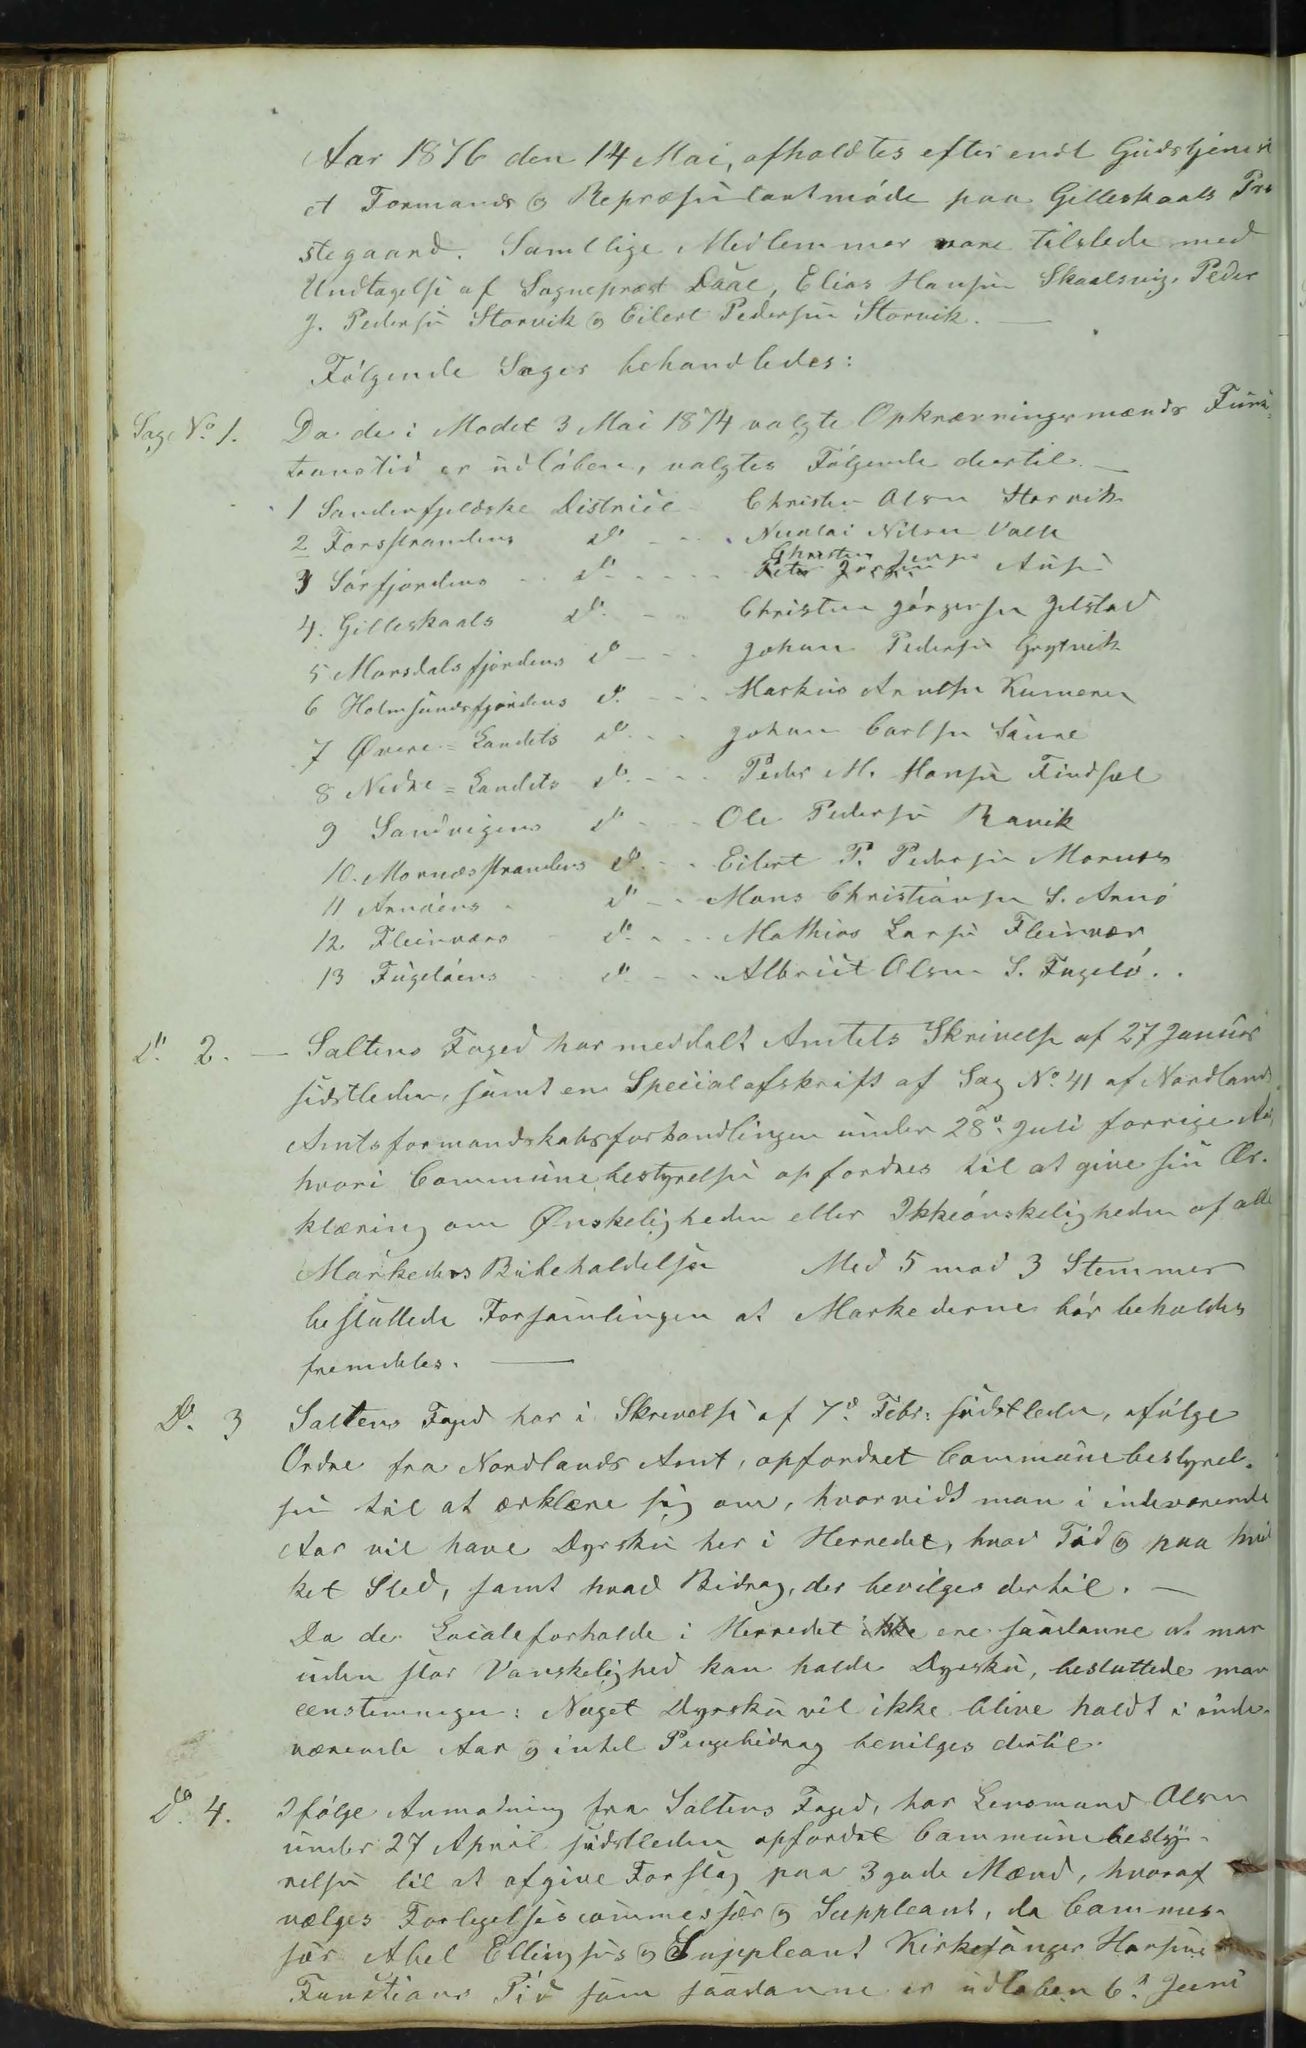 Aar 1876 den 14 Mai, afholdtes efter endt Gudstjeneste
et Formands og Repræsentantmøde paa Gilleskaals Præ
stegaard. Samtlige Medlemmer vare tilstede med
Undtagelse af Sogneprest Daae, Elias Hansen Skaalsvig, Peder
J. Pedersen Storvik og Eilert Pedersen Storvik. —
Følgende Sager behandledes:
Sag No 1. Da de i Mødet 3 Mai 1874 valgte Opkrævningsmænds Func-
tionstid er udløben, valgtes Følgende dertil. —
1 Sandenfjeldske District Christen Olsen Storvik
2 Forsstrandens do - - Nicolai Nilsen Valle
3 Sørfjordens - - do - - - Peter Jensen Christen Jensen
4. Gilleskaals do. - - Christen Jørgensen Jelstad
5 Morsdalsfjordens do - - Johan Pedersen Grytvik
6 Holmsundsfjordens do. - - Markus Arntsen
7 Øvre=Landets do - - Johan Carlsen Saure
8 Nedre=Landets do. - - Peder M. Hansen Findsæt
9 Sandvigens do - - Ole Pedersen Ravik
10. Mornæsstrandens do. - - Eilert P. Pedersen Mornæs
11 Arnøens - do - - Mons Christiansen S. Arnø
12. Fleinværs - do. - - Mathias Larsen Fleinvær
13 Fugeløens - - do - - Albrict Olsen S. Fugelø. .
do. 2. — Saltens Foged har meddelt Amtets Skrivelse af 27 Januar
sidstleden, samt en Specialafskrift af Sag No. 41 af Nordlands
Amtsformandskabsforhandlingen under 28de Juli forrige Aar,
hvori Communebestyrelsen opfordres til at give sin Er-
klæring om Ønskeligheden eller Ikkeønskeligheden af alle
Markeders Bibeholdelse Med 5 mod 3 Stemmer
besluttede Forsamlingen at Markederne bør beholdes
fremdeles. —
Do. 3 Saltens Foged har i Skrivelse af 7de Febr: sidstleden, ifølge
Ordre fra Nordlands Amt, opfordret Communebestyrel-
sen til at erklære sig om, hvorvidt man i indeværende
Aar vil have Dyrsku her i Herredet, hvad Tid og paa hvil
ket Sted, samt hvad Bidrag, der bevilges dertil. —
Da de Localeforholde i Herredet ikke ere saadanne at man
uden stor Vanskelighed kan holde Dyrsku, besluttede man
eenstemmigen: Noget Dyrsku vil ikke blive holdt i inde-
værende Aar og intet Pengebidrag bevilges dertil.
Do. 4. Ifølge Anmodning fra Saltens Foged, har Lensmand Olsen
under 27 April sidstleden opfordret Communebesty-
relsen til at afgive Forslag paa 3 gode Mænd, hvoraf
vælges Forligelsescommessær og Suppleant, da Commes-
sær Abel Ellingsens og Suppleant Kirkesanger Hansens
Functions Tid som saadanne er udløben 6te Juni